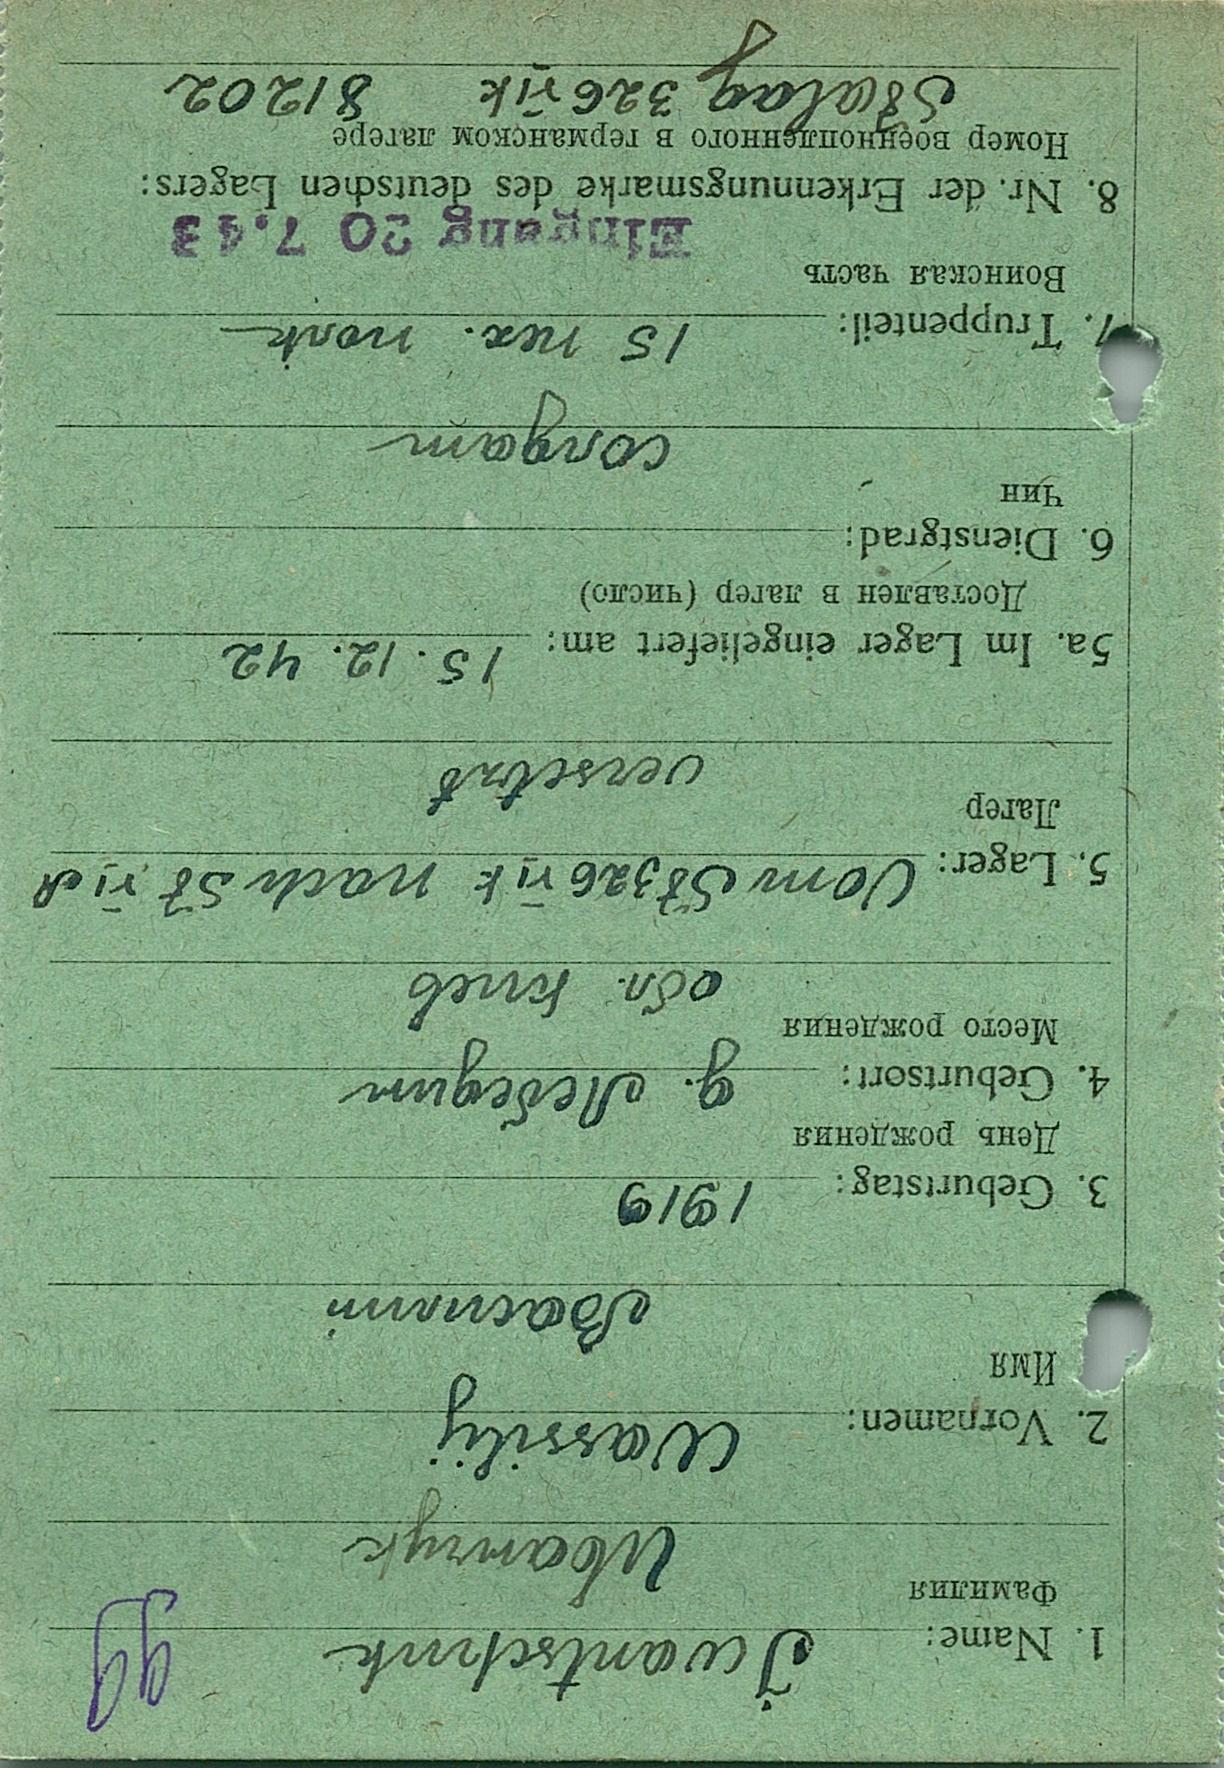 1. Name: Iwantschuk
Фамилия
Иванчук
2. Vornamen: Wassilij
Имя
Василий
3. Geburtstag: 1919
День рождения
4. Geburtsort: д.
Место рождения
обл. Киев
5. Lager: Vom St 326 VI K nach St
Лагер
versetzt
5a. Im Lager eingeliefert am: 15.12.42
Доставлен в лагер (число)
6. Dienstgrad:
Чин
солдат
7. Truppenteil: 15 пех. полк
Воинская часть
Eingang 20 7.43
8. Nr. der Erkennungsmarke des deutschen Lagers:
Номер военнопленного в германском лагере
Stalag 326 VI K 81202